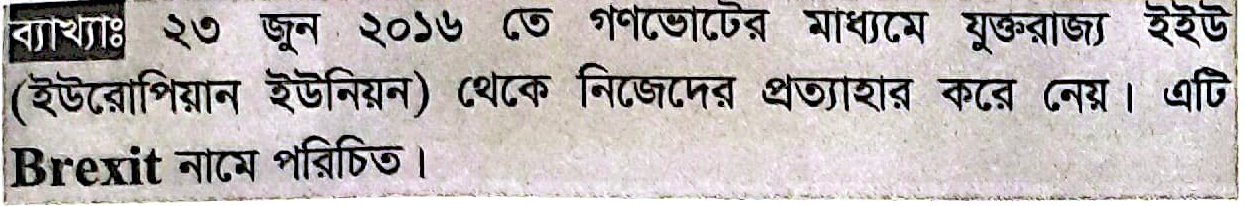 ব্যাখ্যাঃ ২৩ জুন ২০১৬ তে গণভোটের মাধ্যমে যুক্তরাজ্য ইইউ
(ইউরোপিয়ান ইউনিয়ন) থেকে নিজেদের প্রত্যাহার করে নেয়। এটি
Brexit নামে পরিচিত।